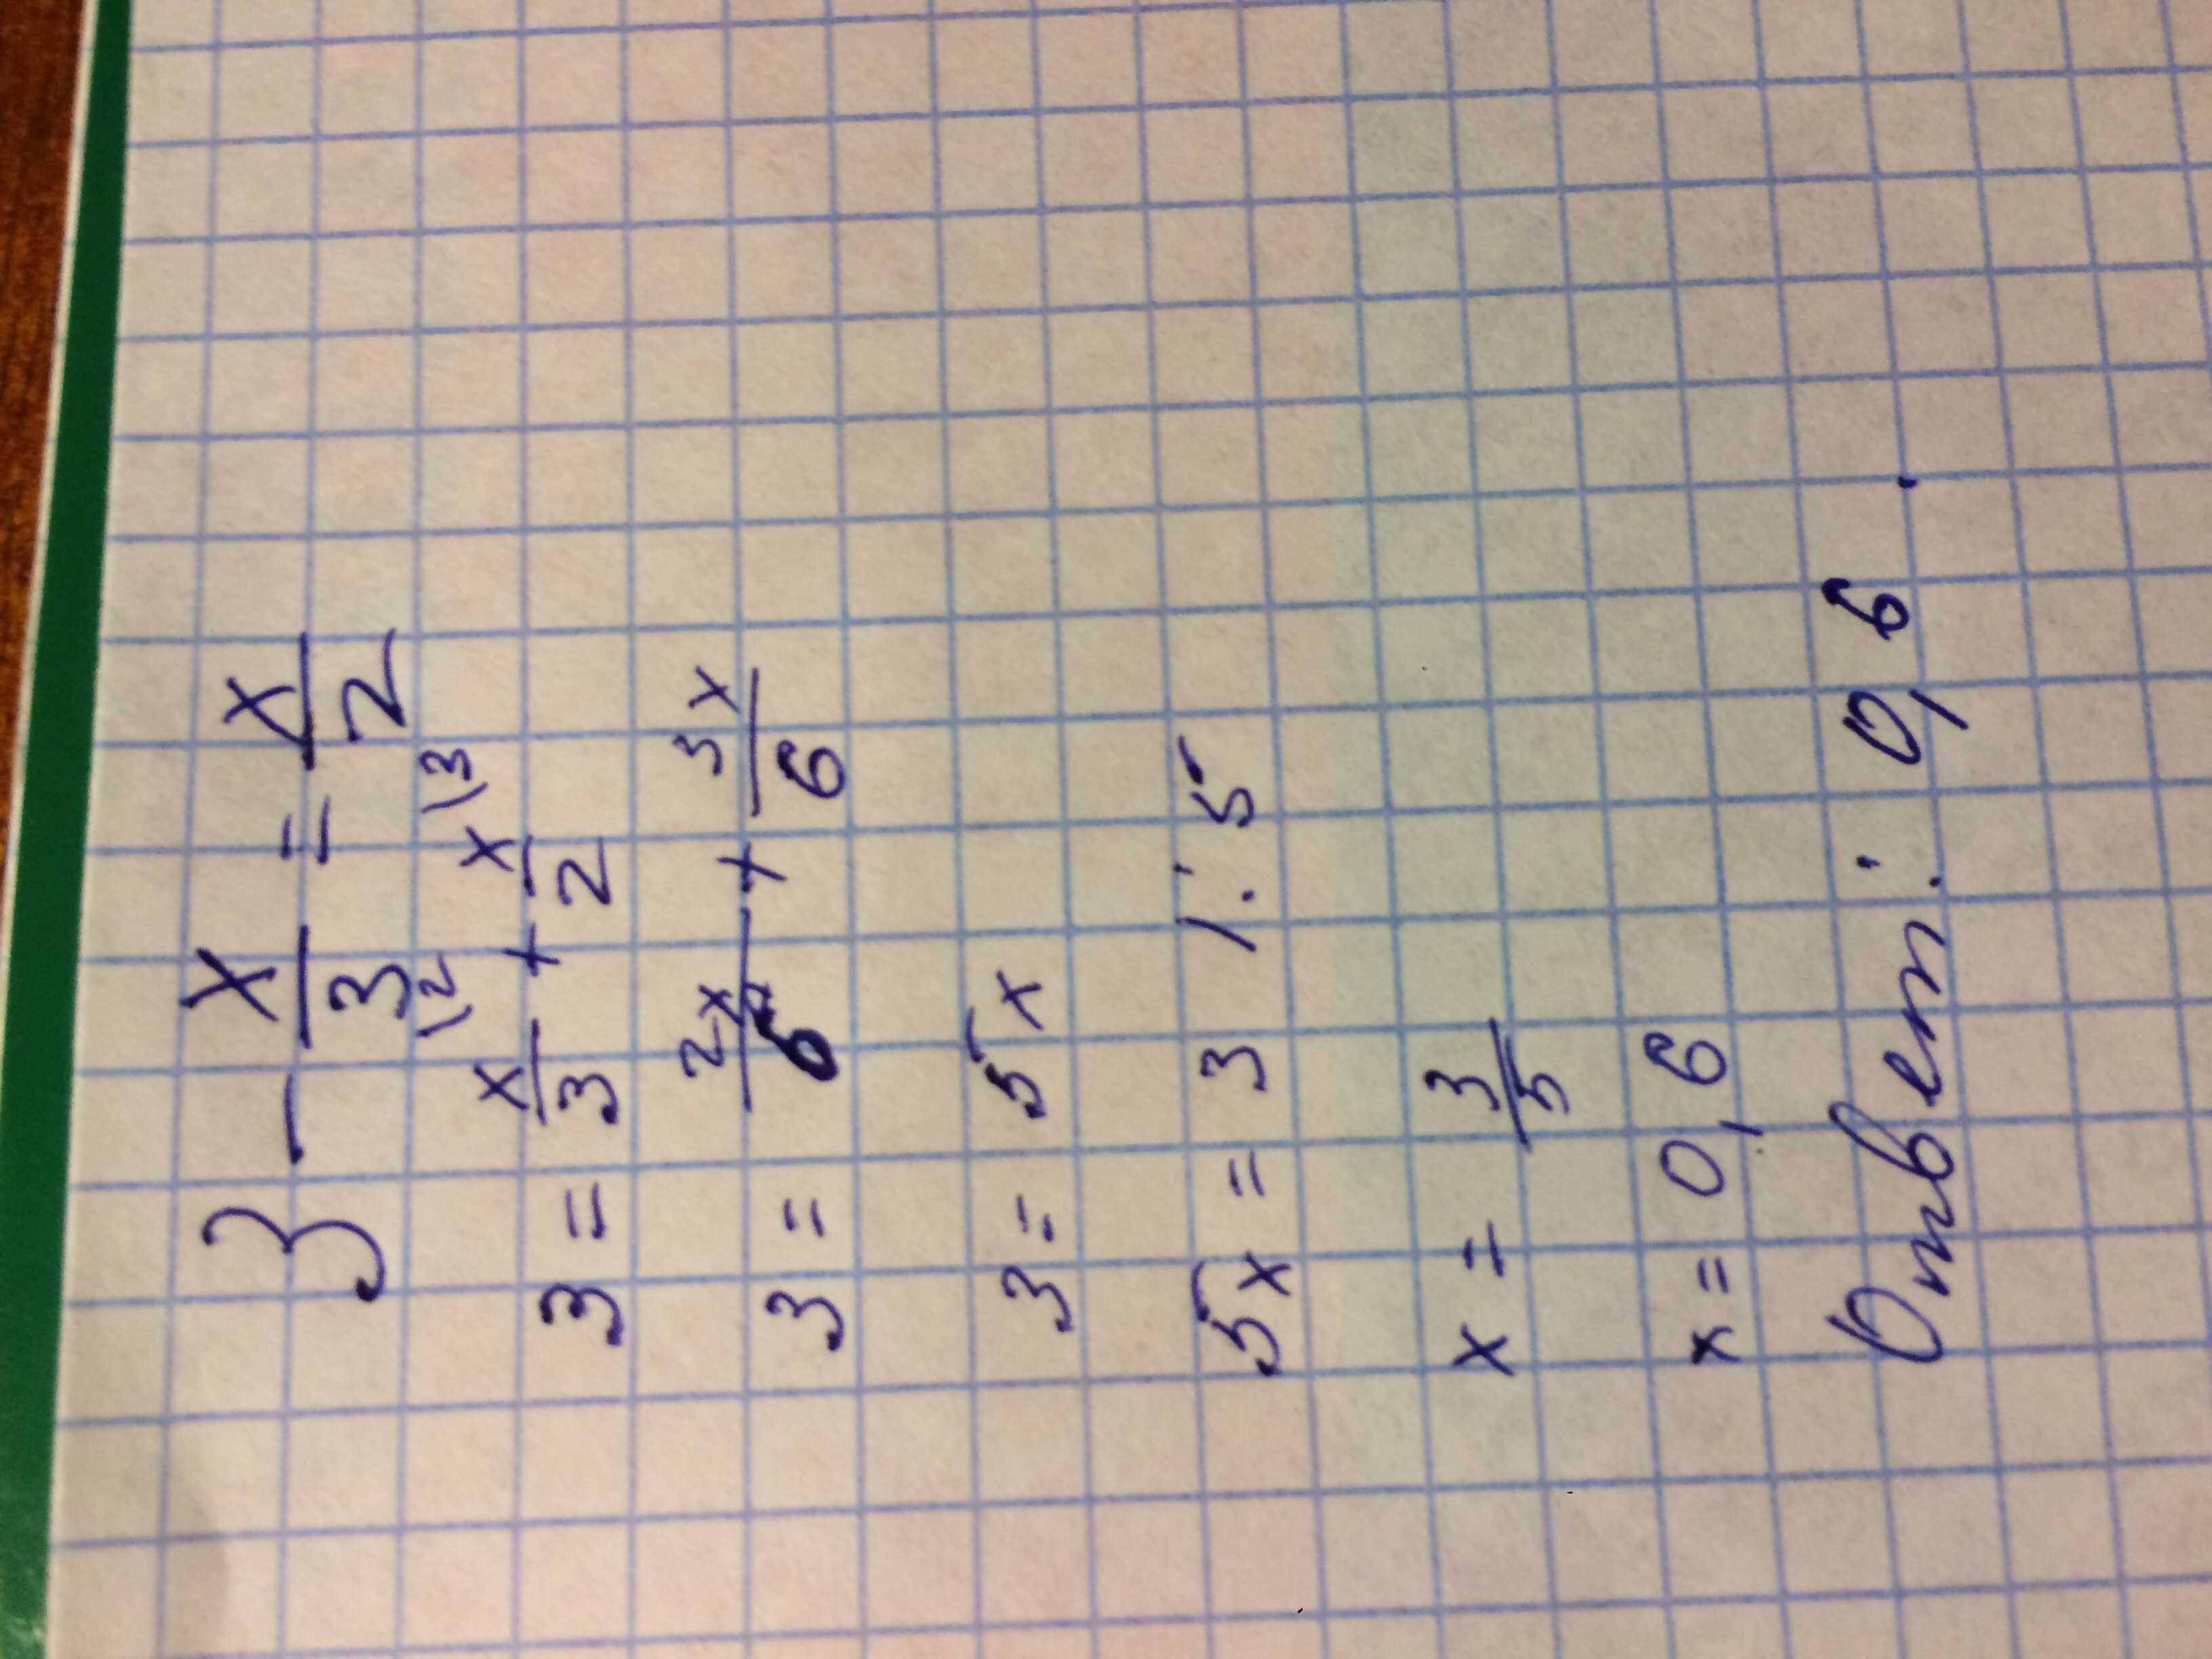 3 - x/3 = x/2
3 = x/3 \2 + x/2 \3
3 = 2x/6 + 3x/6
3 = 5x
5x = 3 | : 5
x = 3/5
x = 0,6
Ответ: 0,6.